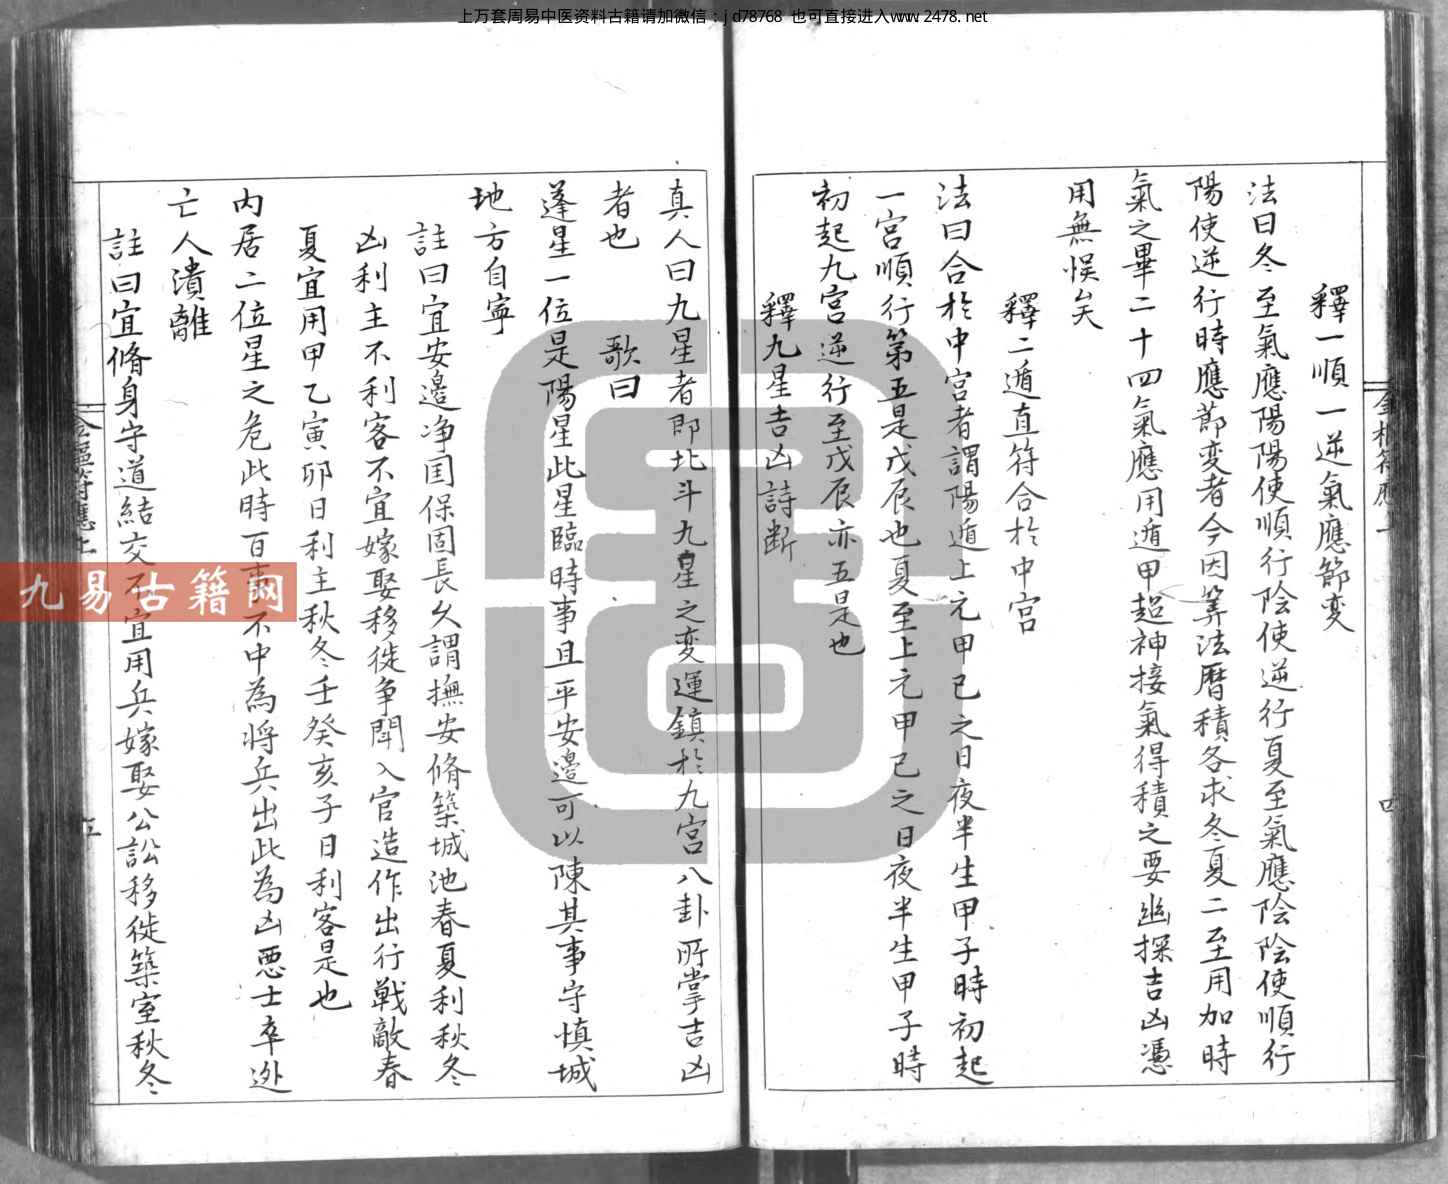 上万套周易中医资料古籍请加微信：jd78768 也可直接进入www.2478.net
釋一順一逆氣應節变
法曰冬至氣應陽陽使順行陰使逆行夏至氣應陰陰使順行
陽使逆行時應莭变者今因筭法曆積各求冬夏二至用加時
氣之畢二十四氣應用遁甲超神接氣得積之要幽探吉凶憑
用無悮矣
釋二遁直符合於中宫
法曰合於中宮者謂陽遁上元甲己之日夜半生甲子時初起
一宫順行第五是戊辰也夏至上元甲己之日夜半生甲子時
初起九宫逆行至戊辰亦五是也
釋九星吉凶詩断
四
真人曰九星者即北斗九皇之变運鎮於九宫八卦所掌吉凶
者也 歌曰
蓬星一位是陽星此星臨時事且平安邉可以陳其事守慎城
地方自寧
註曰宜安邉净囯保固長久謂撫安脩築城池春夏利秋冬
凶利主不利客不宜嫁娶移徙争鬪入官造作出行戦敵春
夏宜用甲乙寅卯日利主秋冬壬癸亥子日利客是也
内居二位星之危此時百事不中為将兵出此為凶悪士卒迯
亡人潰離
註曰宜脩身守道結交不宜用兵嫁娶公訟移徙築室秋冬
符應上
九易古籍网